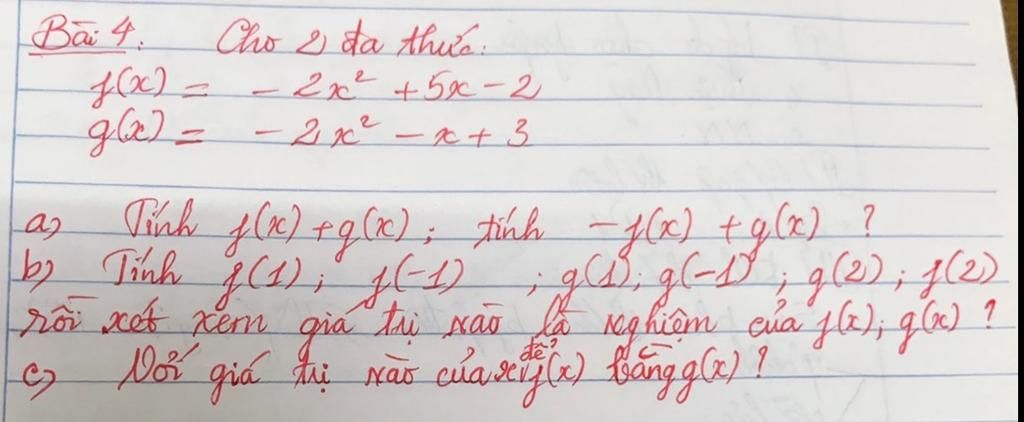 Bài 4. Cho 2 đa thức:
f(x) = - 2x² + 5x - 2
g(x) = - 2x² - x + 3
a) Tính f(x) + g(x); tính - f(x) + g(x) ?
b) Tính f(1); f(-1) ; g(1); g(-1); g(2); f(2)
rồi xét xem giá trị nào là nghiệm của f(x); g(x) ?
c) Với giá trị nào của x để f(x) bằng g(x) ?